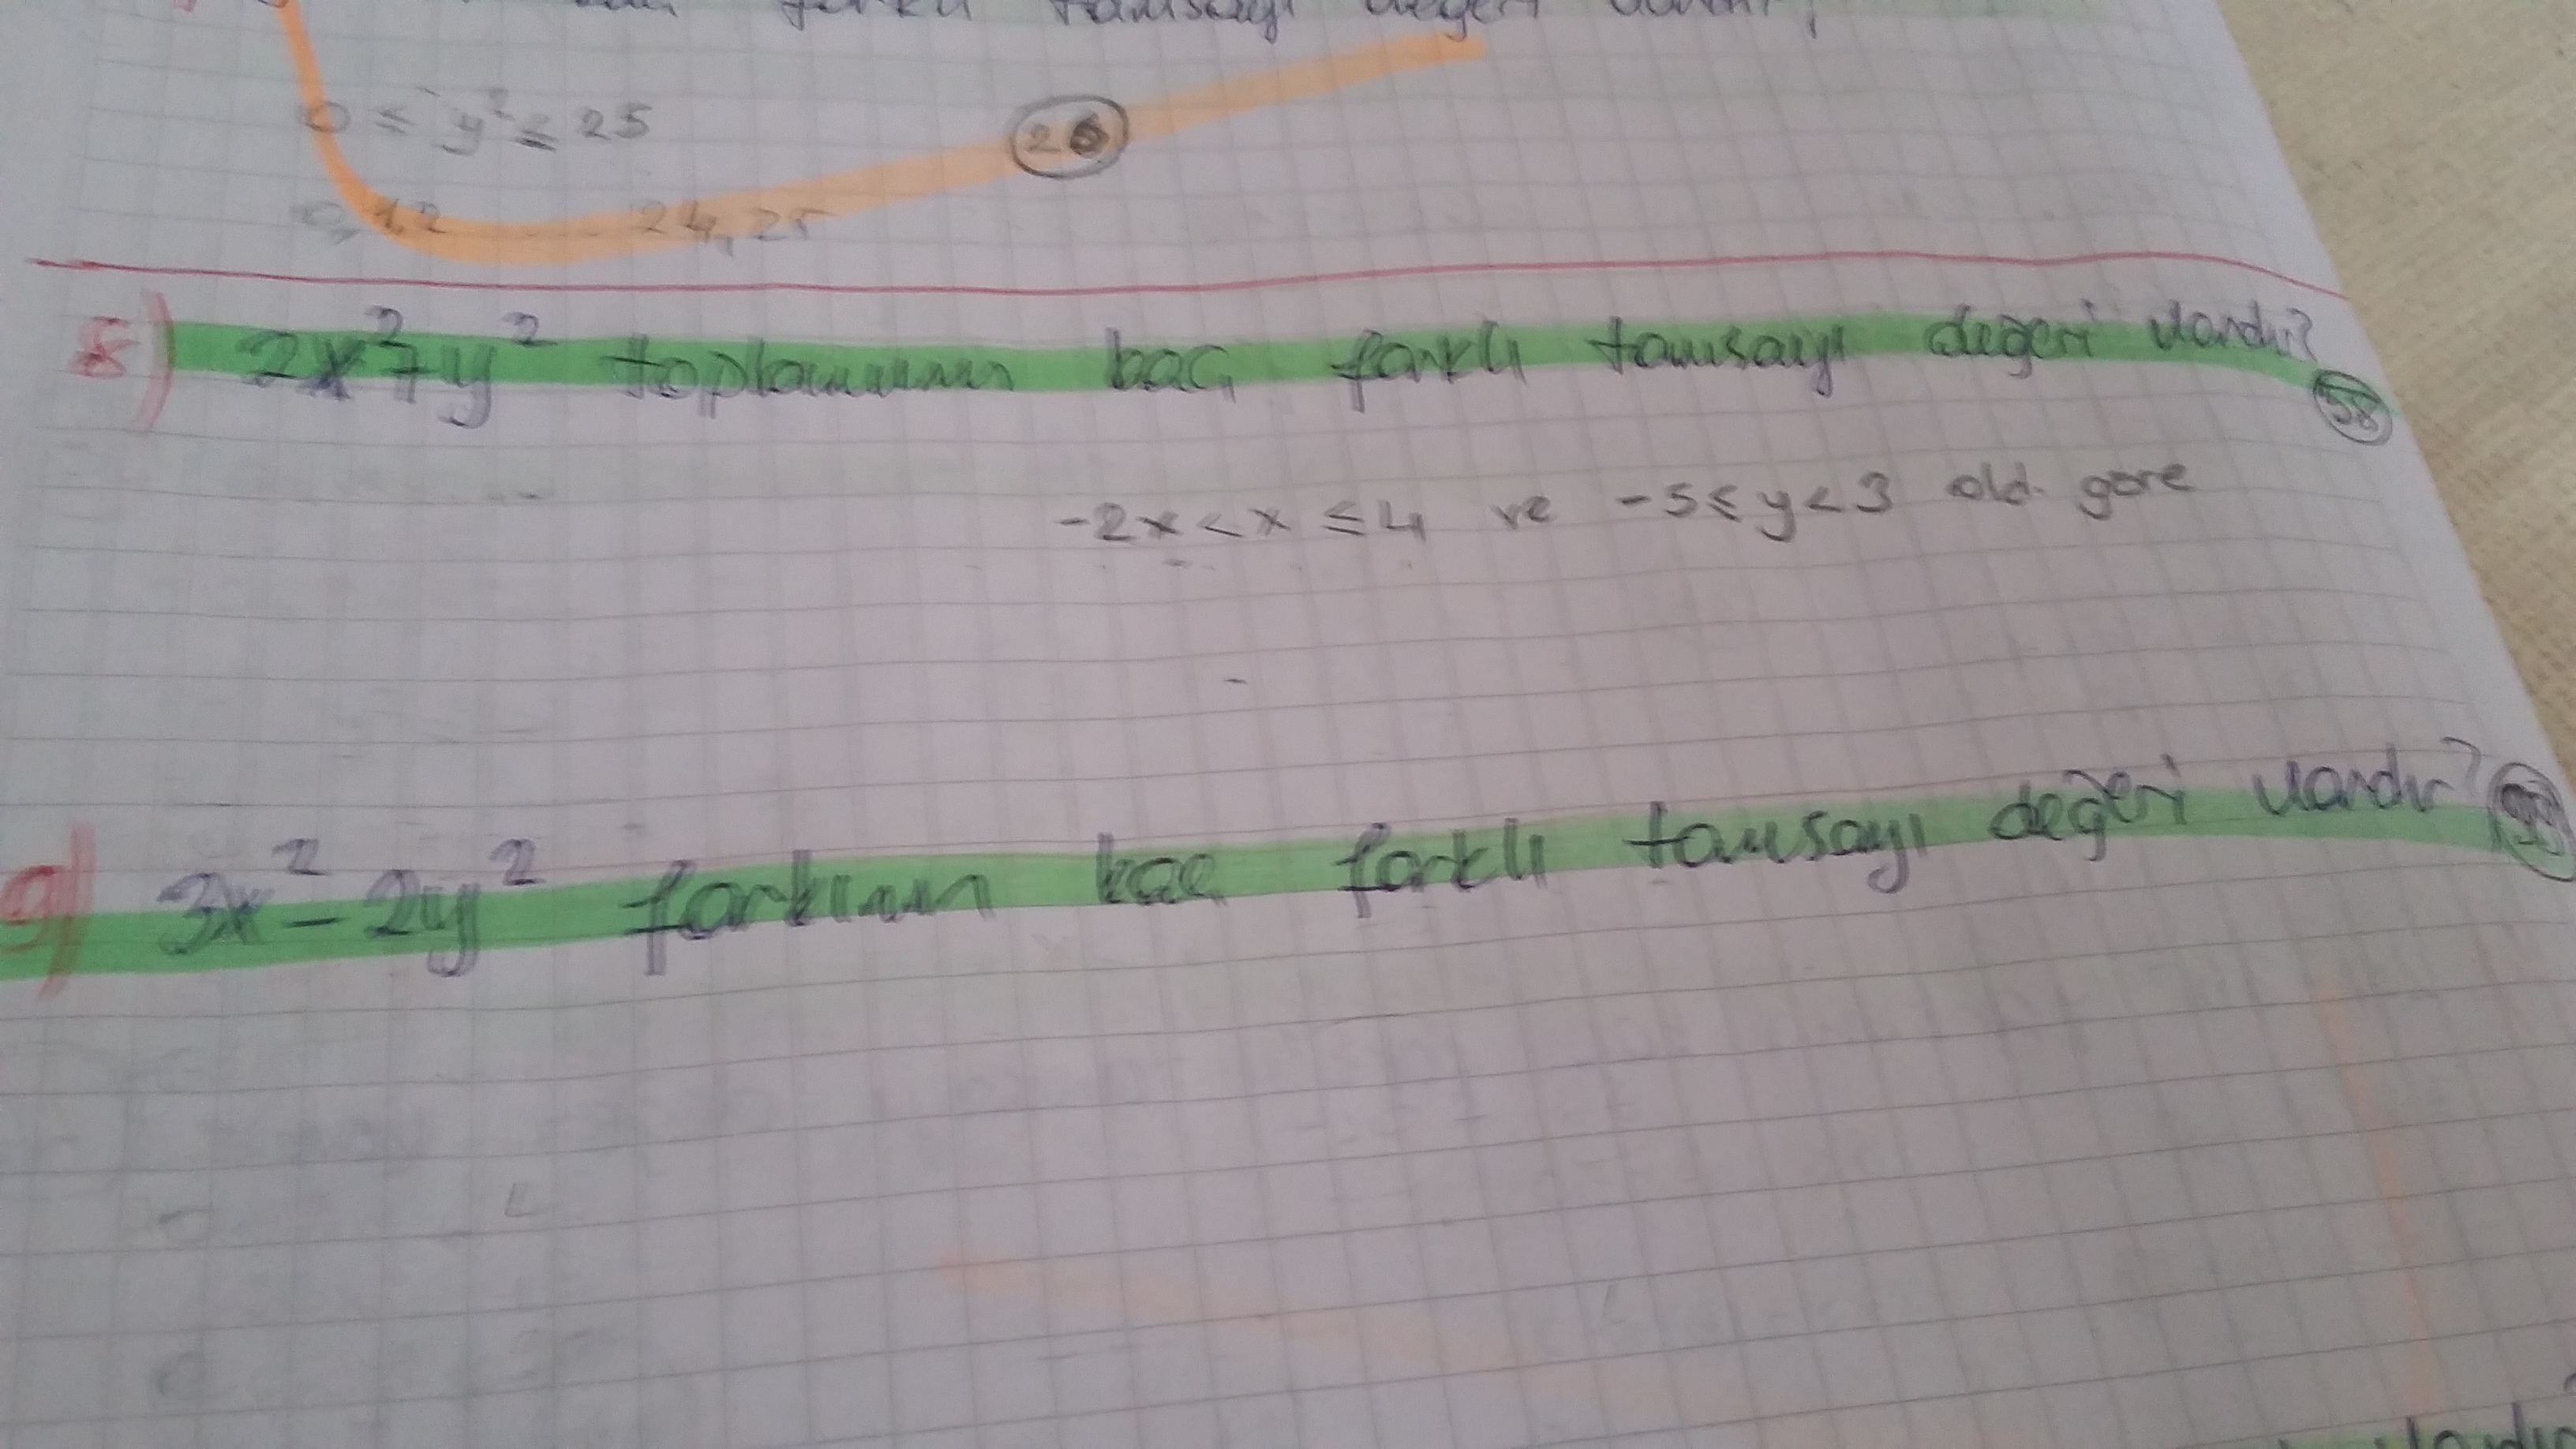 farklı tamsayı değeri vardır?
0 ≤ y² ≤ 25
26
0,1,2 ...... 24,25
8) 2x²+y² toplamının kaç farklı tamsayı değeri vardır?
58
-2x < x ≤ 4 ve -5 ≤ y < 3 old. göre
9) 3x² - 2y² farkının kaç farklı tamsayı değeri vardır?
99